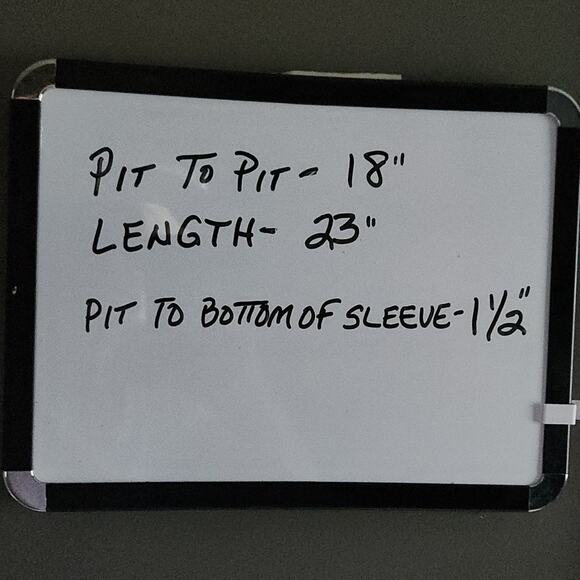 PIT TO PIT- 18"
LENGTH- 23"
PIT TO BOTTOM OF SLEEVE- 1 1/2"